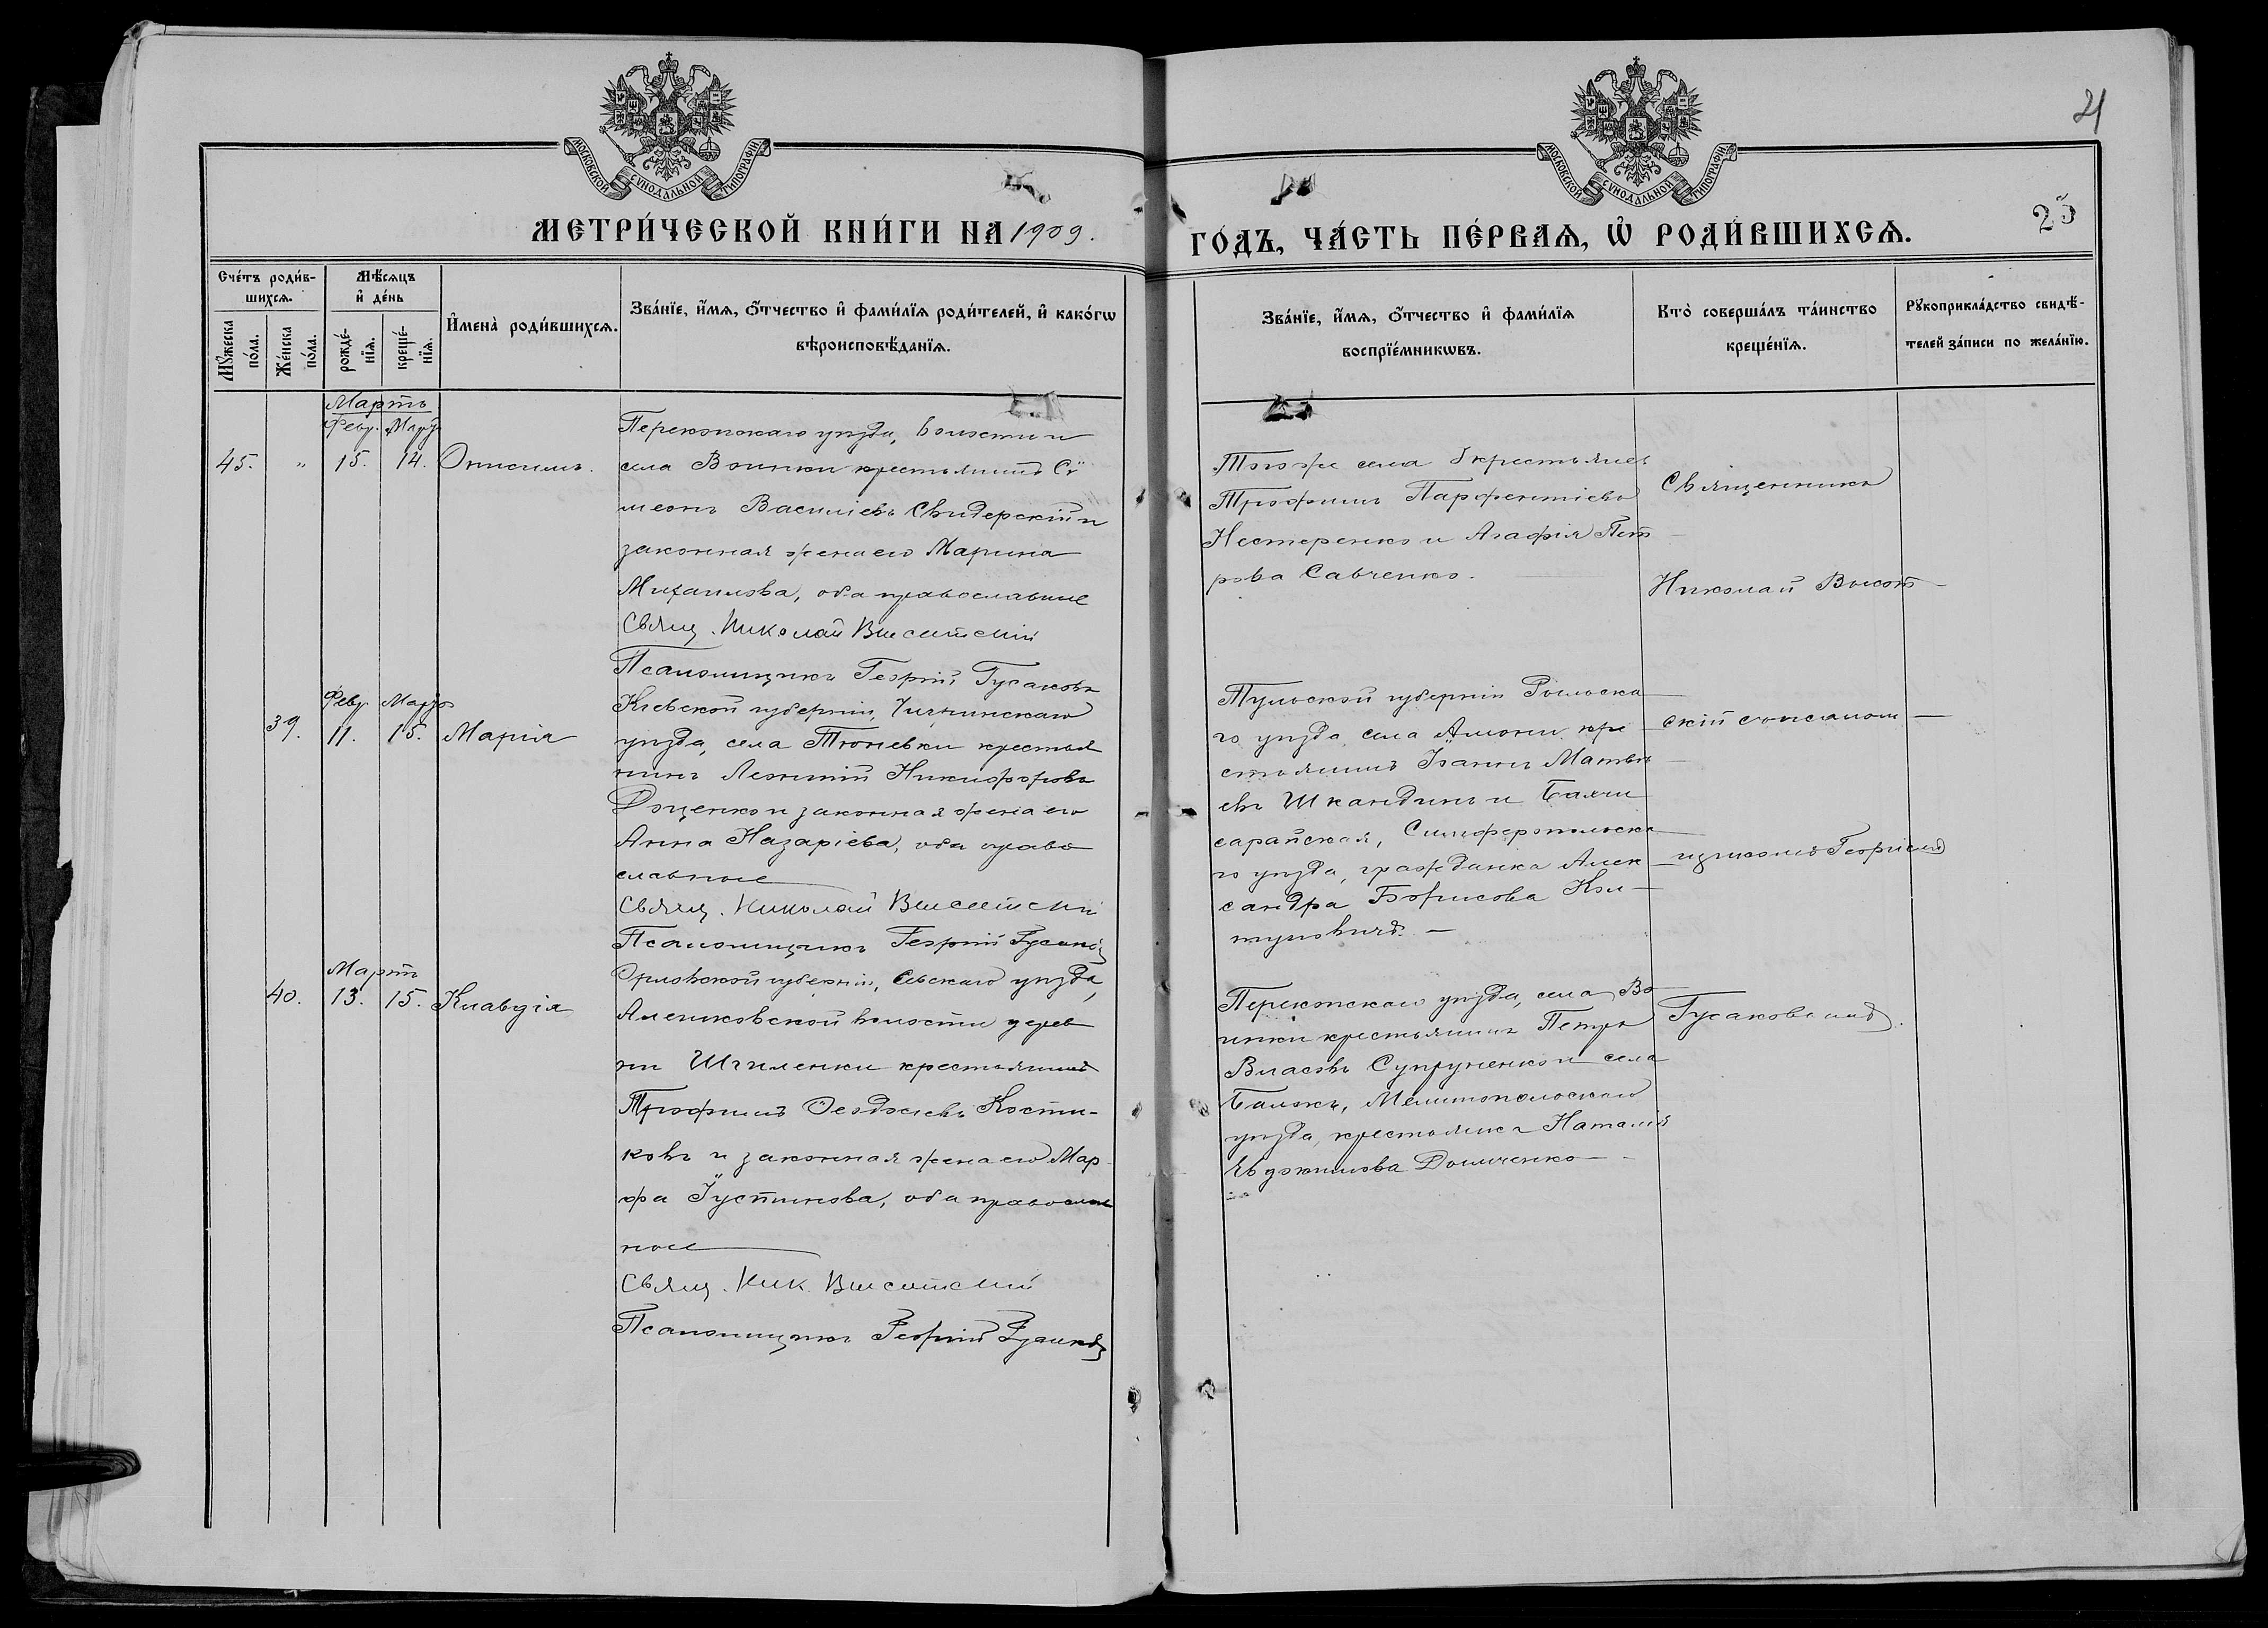 21
МОСКОВСКОЙ СѴНОДАЛЬНОЙ ТИПОГРАФІИ
МОСКОВСКОЙ СѴНОДАЛЬНОЙ ТИПОГРАФІИ
МЕТРИ́ЧЕСКОЙ КНИ́ГИ НА 1909.
ГО́ДЪ, ЧА́СТЬ ПЕ́РВАѦ, Ѡ҆ РОДИ́ВШИХСѦ.
25
Сче́тъ роди́в-
шихсѧ.
Мꙋ́жеска
по́ла.
Же́нска
по́ла.
Мѣ́сяцъ
и҆ де́нь
рожде́-
нїѧ.
креще́-
нїѧ.
И҆мена̀ роди́вшихсѧ.
Зва́нїе, и҆́мѧ, ѻ҆́тчество и҆ фами́лїѧ роди́телей, и҆ како́гѡ
вѣроисповѣ́данїѧ.
Зва́нїе, и҆́мѧ, ѻ҆́тчество и҆ фами́лїѧ
воспрїе́мникѡвъ.
Кто̀ соверша́лъ та́инство
креще́нїѧ.
Рꙋкоприкла́дство свидѣ́-
телей за́писи по жела́нїю.
Мартъ
Февр. Март
45. " 15. 14. Онисимъ.
Перекопскаго уѣзда, волости и
села Воинки крестьянинъ Си
меонъ Васильевъ Свидерскій и
законная жена его Марина
Михаилова, оба православные
Свящ. Николай Высотскій
Псаломщикъ Георгій Гусаковъ
Тогоже села крестьяне
Трофимъ Парфентіевъ
Нестеренко и Агафія Пет
рова Савченко.
Священникъ
Николай Высот
Февр Март
39. 11. 15. Марія
Кіевской губерніи, Чигиринскаго
уѣзда, села Тюневки крестья
нинъ Леонтій Никифоровъ
Доценко и законная жена его
Анна Назаріева, оба право
славные
Свящ. Николай Высотскій
Псаломщикъ Георгій Гусаковъ
Тульской губерніи Рыльска
го уѣзда села Амони кре
стьянинъ Іоаннъ Матвѣ
евъ Шкандинъ и Бахчи
сарайская, Симферопольска
го уѣзда, гражданка Алек
сандра Борисова Кол
туновичъ.
скій с псалом
щикомъ Георгіемъ
Мартъ
40. 13. 15. Клавдія
Орловской губерніи, Сѣвскаго уѣзда,
Алешковской волости дерев
ни Шгиленки крестьянинъ
Трофимъ Ѳеодосіевъ Кости-
ковъ и законная жена его Мар
фа Іустинова, оба православ
ные
Свящ. Ник. Высотскій
Псаломщикъ Георгій Гусаковъ
Перекопскаго уѣзда, села Во
инки крестьянинъ Петръ
Власовъ Супруненко и села
Балокъ, Мелитопольскаго
уѣзда, крестьянка Наталія
Евдокимова Домченко
Гусаковымъ.